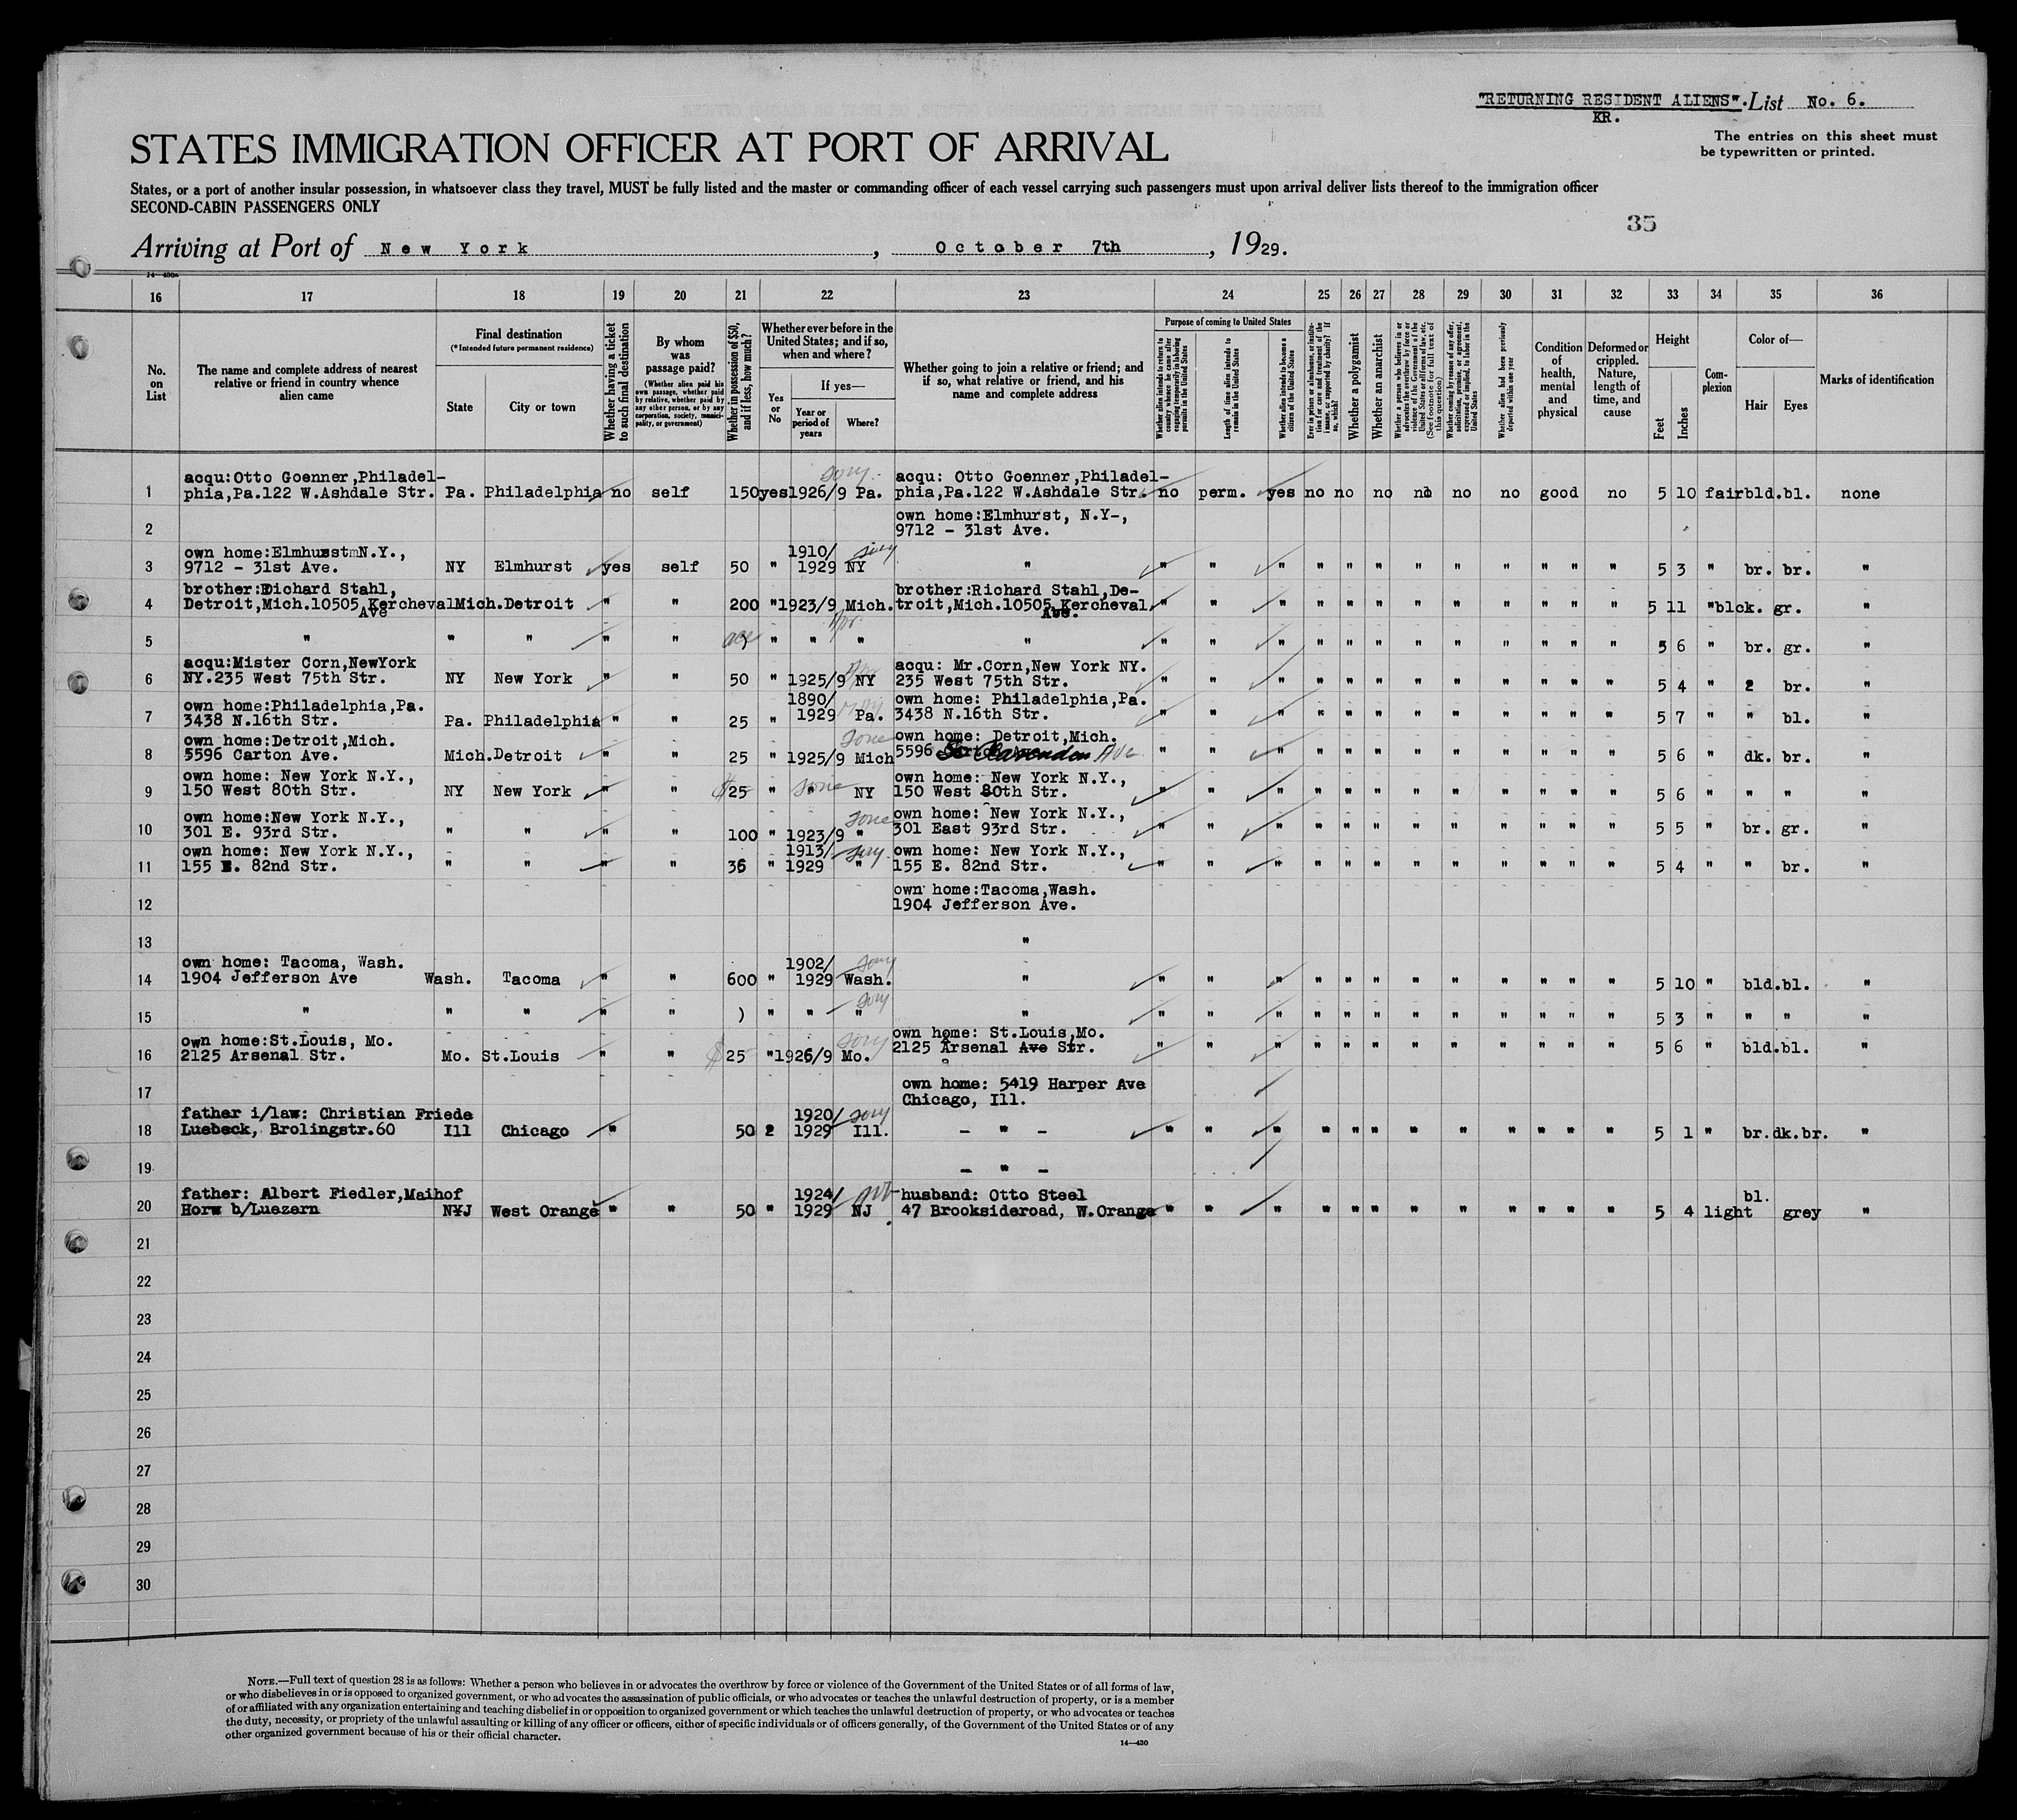 "RETURNING RESIDENT ALIENS". List No. 6.
KR.
The entries on this sheet must
be typewritten or printed.
STATES IMMIGRATION OFFICER AT PORT OF ARRIVAL
States, or a port of another insular possession, in whatsoever class they travel, MUST be fully listed and the master or commanding officer of each vessel carrying such passengers must upon arrival deliver lists thereof to the immigration officer
SECOND-CABIN PASSENGERS ONLY
35
Arriving at Port of New York, October 7th, 1929.
14—430a
16 17 18 19 20 21 22 23 24 25 26 27 28 29 30 31 32 33 34 35 36
No. on List
The name and complete address of nearest relative or friend in country whence alien came
Final destination
(*Intended future permanent residence)
State
City or town
Whether having a ticket to such final destination
By whom was passage paid?
(Whether alien paid his own passage, whether paid by relative, whether paid by any other person, or by any corporation, society, municipality, or government)
Whether in possession of $50, and if less, how much?
Whether ever before in the United States; and if so, when and where?
Yes or No
If yes—
Year or period of years
Where?
Whether going to join a relative or friend; and if so, what relative or friend, and his name and complete address
Purpose of coming to United States
Whether alien intends to return to country whence he came after engaging temporarily in laboring pursuits in the United States
Length of time alien intends to remain in the United States
Whether alien intends to become a citizen of the United States
Ever in prison or almshouse, or institution for care and treatment of the insane, or supported by charity? If so, which?
Whether a polygamist
Whether an anarchist
Whether a person who believes in or advocates the overthrow by force or violence of the Government of the United States or all forms of law, etc. (See footnote for full text of this question)
Whether coming by reason of any offer, solicitation, promise, or agreement, expressed or implied, to labor in the United States
Whether alien had been previously deported within one year
Condition of health, mental and physical
Deformed or crippled. Nature, length of time, and cause
Height
Feet
Inches
Complexion
Color of—
Hair
Eyes
Marks of identification
acqu:Otto Goenner,Philadel- acqu: Otto Goenner,Philadel-
1 phia,Pa.122 W.Ashdale Str. Pa. Philadelphia no self 150 yes 1926/9 Pa. phia,Pa.122 W.Ashdale Str. no perm. yes no no no no no no good no 5 10 fair bld. bl. none
own home:Elmhurst, N.Y-,
2 9712 - 31st Ave.
own home:Elmhusst N.Y., 1910/
3 9712 - 31st Ave. NY Elmhurst yes self 50 " 1929 NY " " " " " " " " " " " " " 5 3 " br. br. "
brother:Richard Stahl, brother:Richard Stahl,De-
4 Detroit,Mich.10505 Kercheval Mich. Detroit " " 200 " 1923/9 Mich. troit,Mich.10505 Kercheval " " " " " " " " " " " " 5 11 " blck. gr. "
Ave Ave.
5 " " " " " " " " " " " " " " " " " " " " " 5 6 " br. gr. "
acqu:Mister Corn,NewYork acqu: Mr.Corn,New York NY.
6 NY.235 West 75th Str. NY New York " " 50 " 1925/9 NY 235 West 75th Str. " " " " " " " " " " " " 5 4 " 2 br. "
own home:Philadelphia,Pa. 1890/ own home: Philadelphia,Pa.
7 3438 N.16th Str. Pa. Philadelphia " " 25 " 1929 Pa. 3438 N.16th Str. " " " " " " " " " " " " 5 7 " " bl. "
own home:Detroit,Mich. own home: Detroit,Mich.
8 5596 Carton Ave. Mich. Detroit " " 25 " 1925/9 Mich 5596 Ave " " " " " " " " " " " " 5 6 " dk. br. "
own home: New York N.Y., own home: New York N.Y.,
9 150 West 80th Str. NY New York " " $25 " " NY 150 West 80th Str. " " " " " " " " " " " " 5 6 " " " "
own home:New York N.Y., own home: New York N.Y.,
10 301 E. 93rd Str. " " " " 100 " 1923/9 " 301 East 93rd Str. " " " " " " " " " " " " 5 5 " br. gr. "
own home: New York N.Y., 1913/ own home: New York N.Y.,
11 155 E. 82nd Str. " " " " 36 " 1929 " 155 E. 82nd Str. " " " " " " " " " " " " 5 4 " " br. "
own home:Tacoma,Wash.
12 1904 Jefferson Ave.
13 "
own home: Tacoma, Wash. 1902/
14 1904 Jefferson Ave Wash. Tacoma " " 600 " 1929 Wash. " " " " " " " " " " " " " 5 10 " bld. bl. "
15 " " " " " ) " " " " " " " " " " " " " " " " 5 3 " " " "
own home:St.Louis, Mo. own home: St.Louis,Mo.
16 2125 Arsenal Str. Mo. St.Louis " " $25 " 1926/9 Mo. 2125 Arsenal Ave Str. " " " " " " " " " " " " 5 6 " bld. bl. "
own home: 5419 Harper Ave
17 Chicago, Ill.
father i/law: Christian Friede 1920/
18 Luebeck, Brolingstr.60 Ill Chicago " 50 2 1929 Ill. - " - " " " " " " " " " " " " 5 1 " br. dk.br. "
19 - " -
father: Albert Fiedler,Maihof 1924/ husband: Otto Steel bl.
20 Horw b/Luezern NYJ West Orange " " 50 " 1929 NJ 47 Brooksideroad, W.Orange " " " " " " " " " " " " 5 4 light grey "
21
22
23
24
25
26
27
28
29
30
NOTE.—Full text of question 28 is as follows: Whether a person who believes in or advocates the overthrow by force or violence of the Government of the United States or of all forms of law,
or who disbelieves in or is opposed to organized government, or who advocates the assassination of public officials, or who advocates or teaches the unlawful destruction of property, or is a member
of or affiliated with any organization entertaining and teaching disbelief in or opposition to organized government or which teaches the unlawful destruction of property, or who advocates or teaches
the duty, necessity, or propriety of the unlawful assaulting or killing of any officer or officers, either of specific individuals or of officers generally, of the Government of the United States or of any
other organized government because of his or their official character.
14—430